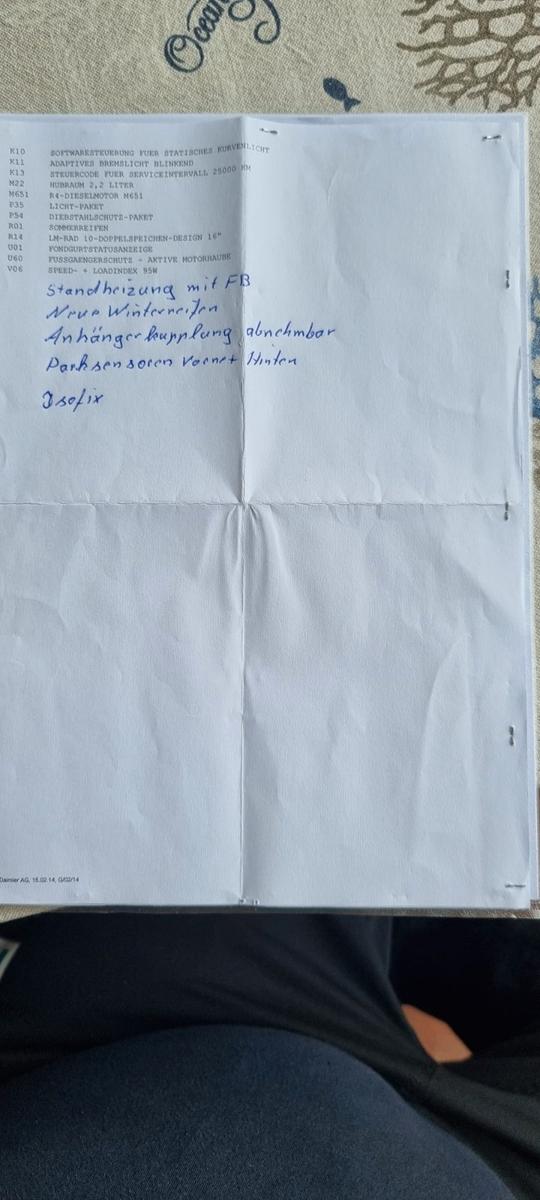 Ocean
K10 SOFTWARESTEUERUNG FUER STATISCHES KURVENLICHT
K11 ADAPTIVES BREMSLICHT BLINKEND
K13 STEUERCODE FUER SERVICEINTERVALL 25000 KM
M22 HUBRAUM 2,2 LITER
M651 R4-DIESELMOTOR M651
P35 LICHT-PAKET
P54 DIEBSTAHLSCHUTZ-PAKET
R01 SOMMERREIFEN
R14 LM-RAD 10-DOPPELSPEICHEN-DESIGN 16"
U01 FONDGURTSTATUSANZEIGE
U60 FUSSGAENGERSCHUTZ - AKTIVE MOTORHAUBE
V06 SPEED- + LOADINDEX 95W
Standheizung mit FB
Neue Winterreifen
Anhängerkupplung abnehmbar
Parksensoren Vorne+ Hinten
Isofix
Daimler AG, 15.02.14, G/02/14